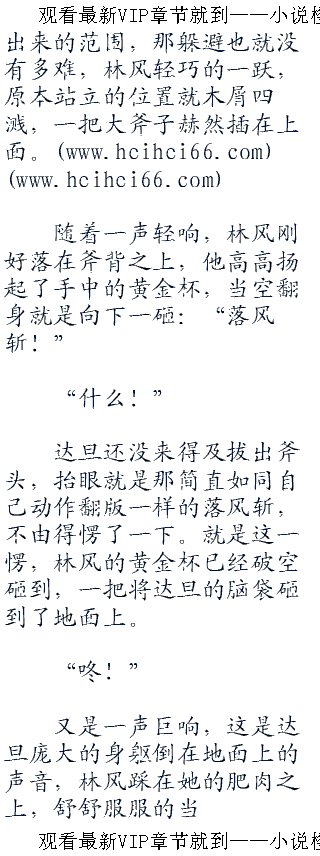 观看最新VIP章节就到——小说检
出来的范围，那躲避也就没
有多难，林风轻巧的一跃，
原本站立的位置就木屑四
溅，一把大斧子赫然插在上
面。(www.hcihci66.com)
(www.hcihci66.com)
随着一声轻响，林风刚
好落在斧背之上，他高高扬
起了手中的黄金杯，当空翻
身就是向下一砸：“落风
斩！”
“什么！”
达旦还没来得及拔出斧
头，抬眼就是那简直如同自
己动作翻版一样的落风斩，
不由得愣了一下。就是这一
愣，林风的黄金杯已经破空
砸到，一把将达旦的脑袋砸
到了地面上。
“咚！”
又是一声巨响，这是达
旦庞大的身躯倒在地面上的
声音，林风踩在她的肥肉之
上，舒舒服服的当
观看最新VIP章节就到——小说检